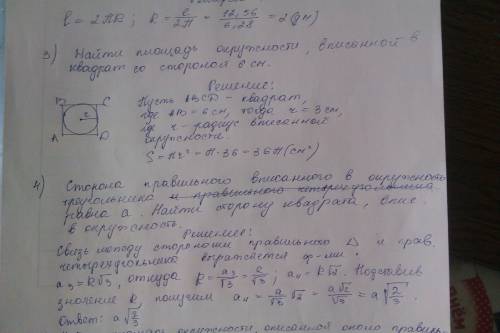 ℓ = 2πR; R = ℓ/2π = 12,56/6,28 = 2 (дм)
3) Найти площадь окружности, вписанной в
квадрат со стороной 6 см.
Решение:
B C
r
A D
Пусть ABCD - квадрат,
где AB = 6 см, тогда r = 3 см,
где r - радиус вписанной
окружности.
S = πr² = π·36 = 36π (см²)
4) Сторона правильного вписанного в окружность
треугольника и правильного четырехугольника
равна a. Найти сторону квадрата, впис.
в окружность.
Решение:
Связь между сторонами правильного Δ и прав.
четырехугольника выражается ф-ми
a₃ = R√3, откуда R = a₃/√3 = a/√3; a₄ = R√2. Подставив
значение R, получим a₄ = a/√3 √2 = a√2/√3 = a√(2/3).
Ответ: a√(2/3)
площадь окружности, описанной около правиль